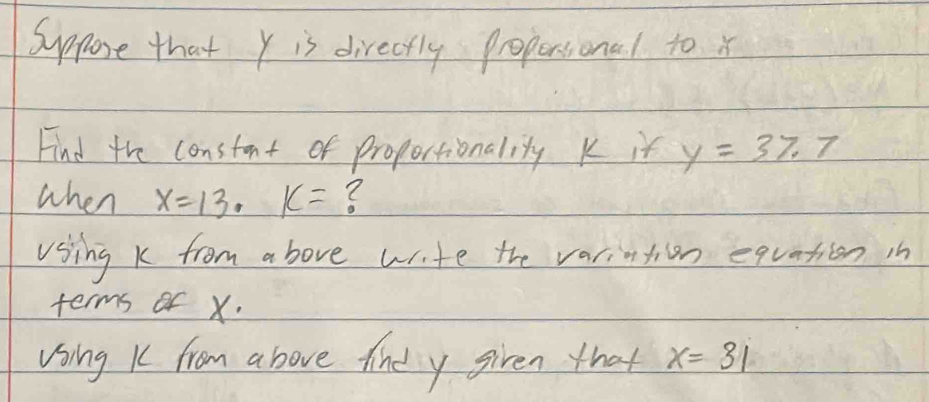 Suppose that y is directly proporsional to x
Find the constant of proportionality K if y = 37.7
when x=13. K= ?
using K from above write the variation equation in
terms of x.
using K from above find y given that x= 31